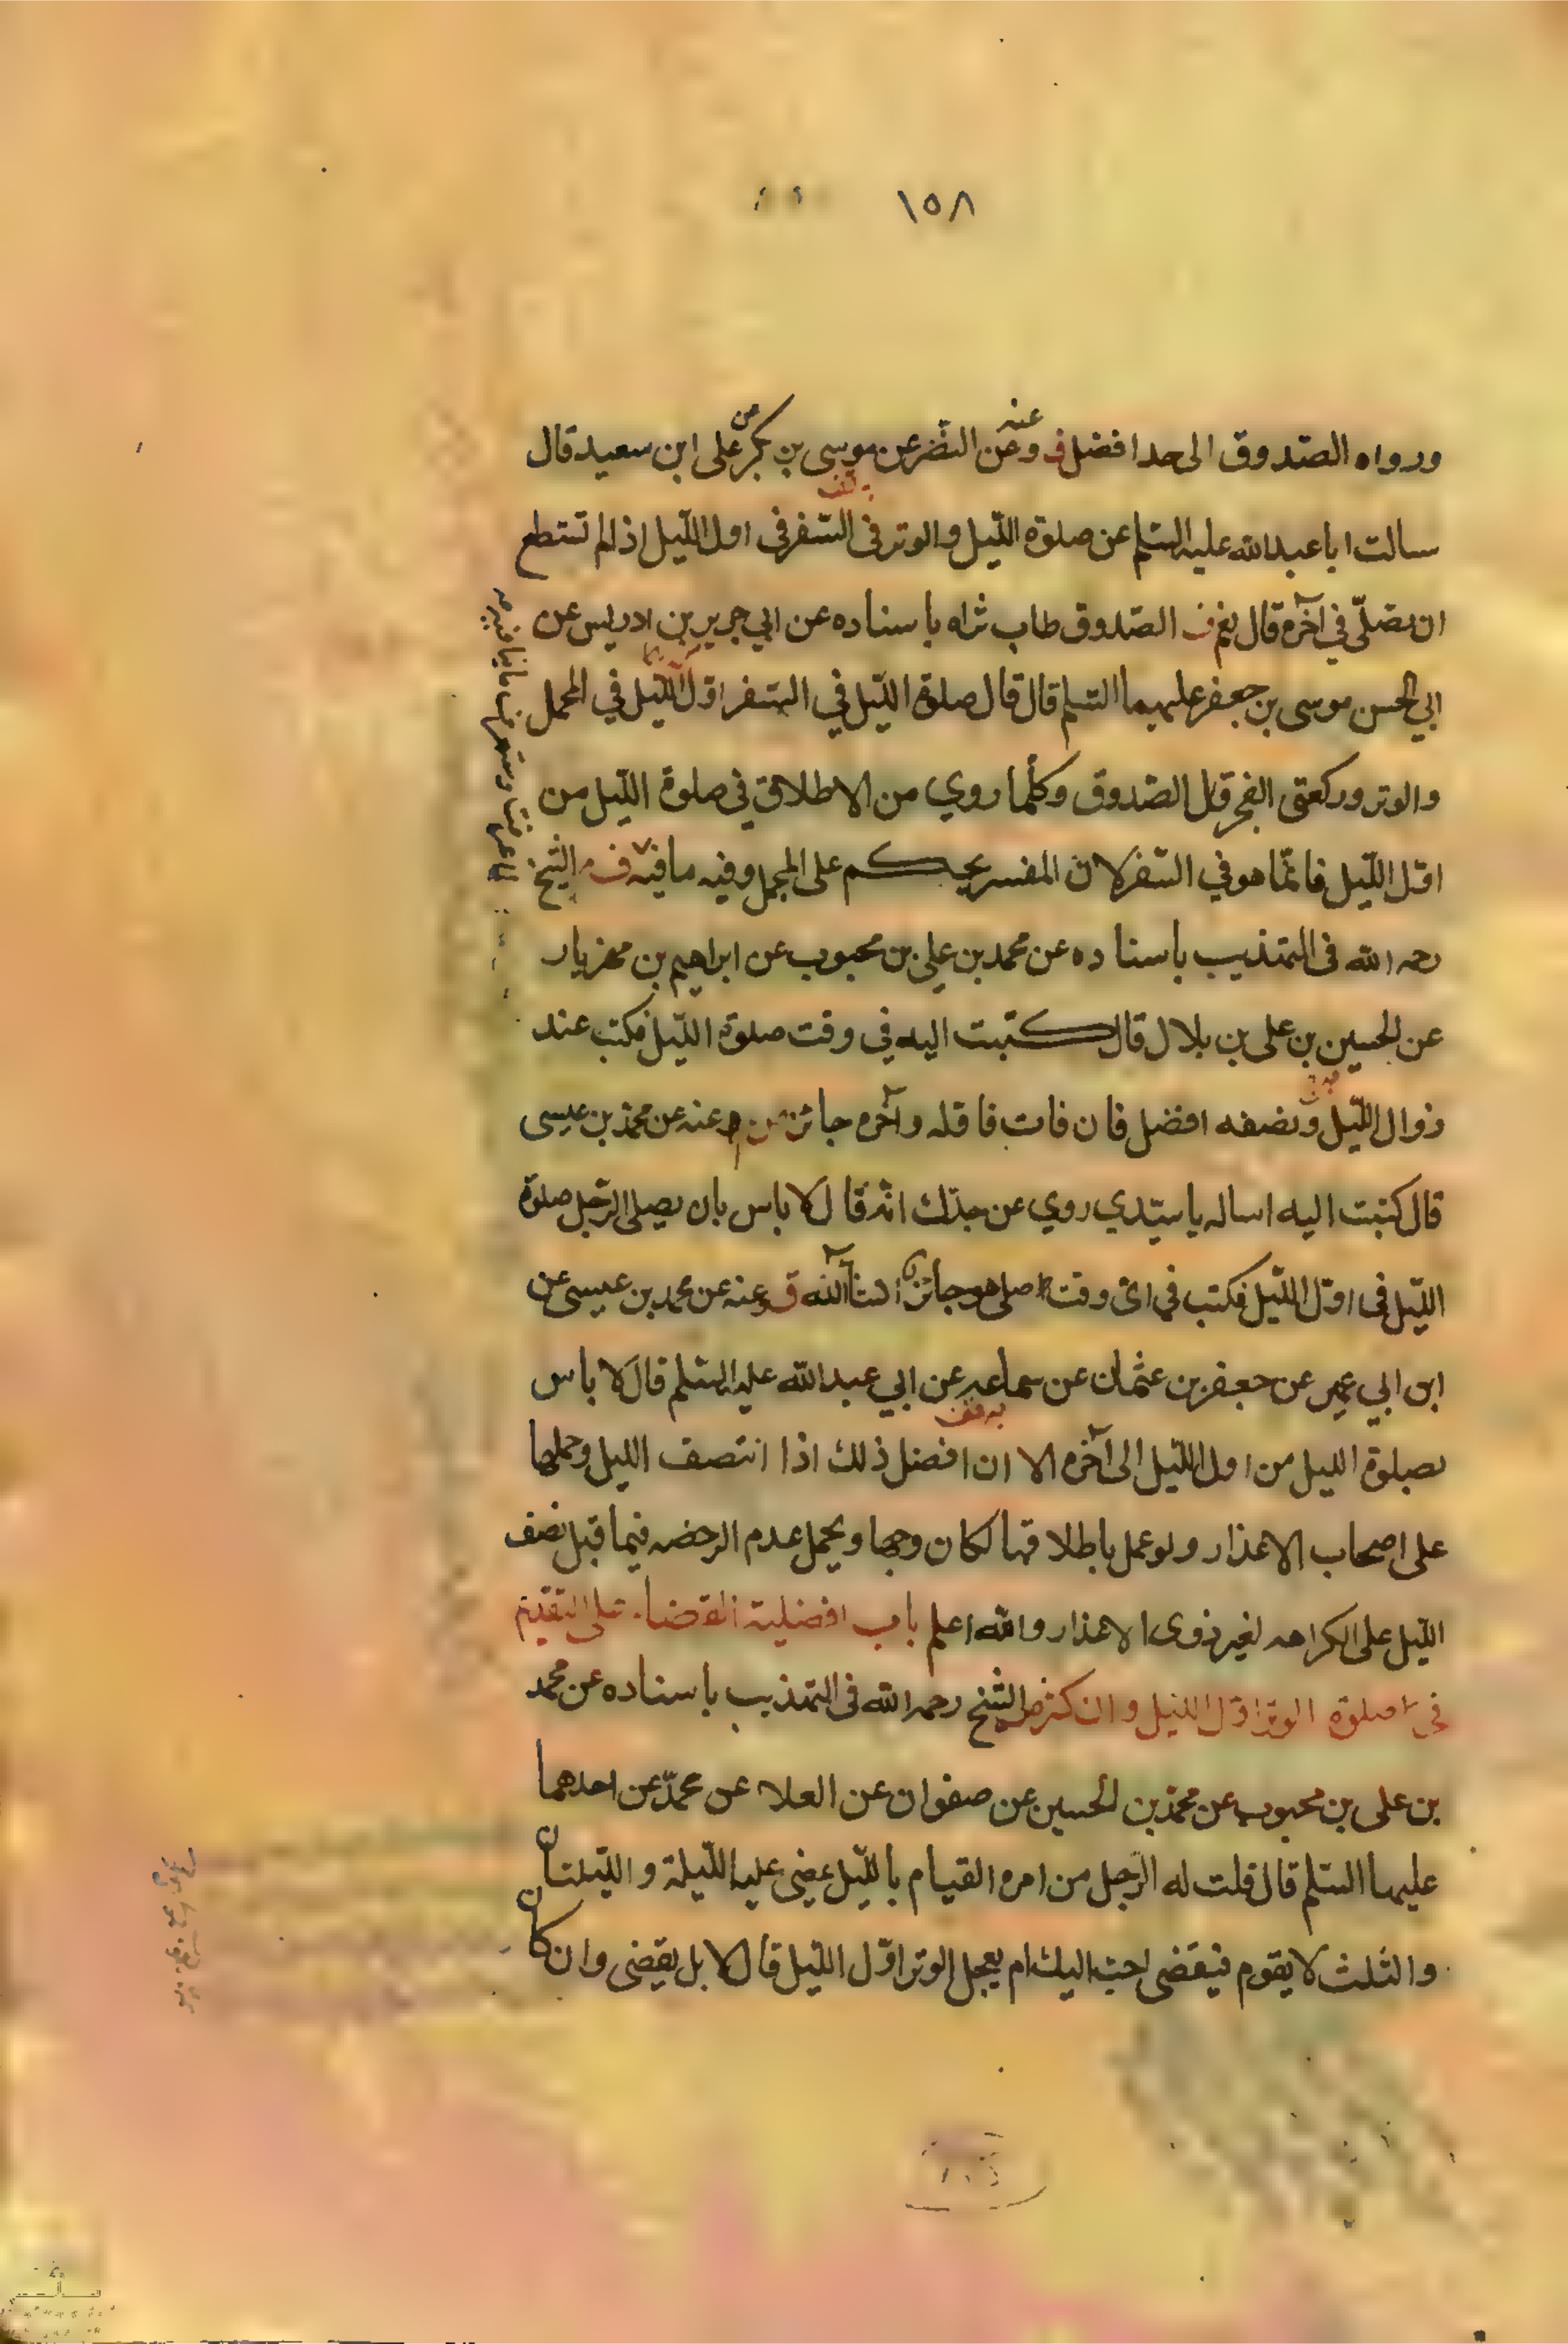 ١٥٨
ورواه الصدوق الى حد افضل ف وعن النضر عن موسى بن بكر عن على ابن سعيد قال
عنه
سالت ابا عبدالله عليه السلم عن صلوة الليل والوتر فى السفر فى اول الليل اذا لم تستطع
ان تصلّى في آخره قال نعم ف الصدوق طاب ثراه باسناده عن ابي جرير بن ادريس عن
ابي الحسن موسى بن جعفر عليهما السلم قال قال صلوة الليل في السفر اوّل الليل في المحمل
والوتر وركعتى الفجر قال الصدوق وكلّما روي من الاطلاق في صلوة الليل من
اوّل الليل فانّما هو في السّفر لان المفسر يحكم على المجمل وفيه ما فيه ف الشيخ
رحمه الله فى التهذيب باسناده عن محمد بن علي بن محبوب عن ابراهيم بن مهزيار
عن الحسين بن على بن بلال قال كتبت اليه في وقت صلوة الليل فكتب عند
زوال الليل ونصفه افضل فان فات فاوله وآخره جائز وعنه عن محمد بن عيسى
قال كتبت اليه اساله يا سيّدي روي عن جدّك انّه قال لا باس بان يصلى الرّجل صلوة
الليل فى اوّل الليل فكتب في اىّ وقت صلى هو جائز ان شاء الله ق وعنه عن محمد بن عيسى عن
ابن ابي عمير عن جعفر بن عثمان عن سماعه عن ابي عبدالله عليه السلم قال لا باس
بصلوة الليل من اول الليل الى آخره الا ان افضل ذلك اذا انتصف الليل وحملها
على اصحاب الاعذار ولو عمل باطلاقها لكان وجها ويحمل عدم الرخصه فيما قبل نصف
الليل على الكراهه لغير ذوى الاعذار والله اعلم باب افضلية القضاء على التقديم
فى صلوة الوتر اوّل الليل وان كثر الشيخ رحمه الله فى التهذيب باسناده عن محمد
بن على بن محبوب عن محمّد بن الحسين عن صفوان عن العلا عن محمّد عن احدهما
عليهما السّلم قال قلت له الرّجل من امره القيام بالليل يمضى عليه الليلة والليلتان
والثلث لا يقوم فيقضى احب اليك ام يعجل الوتر اوّل الليل قال لا بل يقضى وان كان